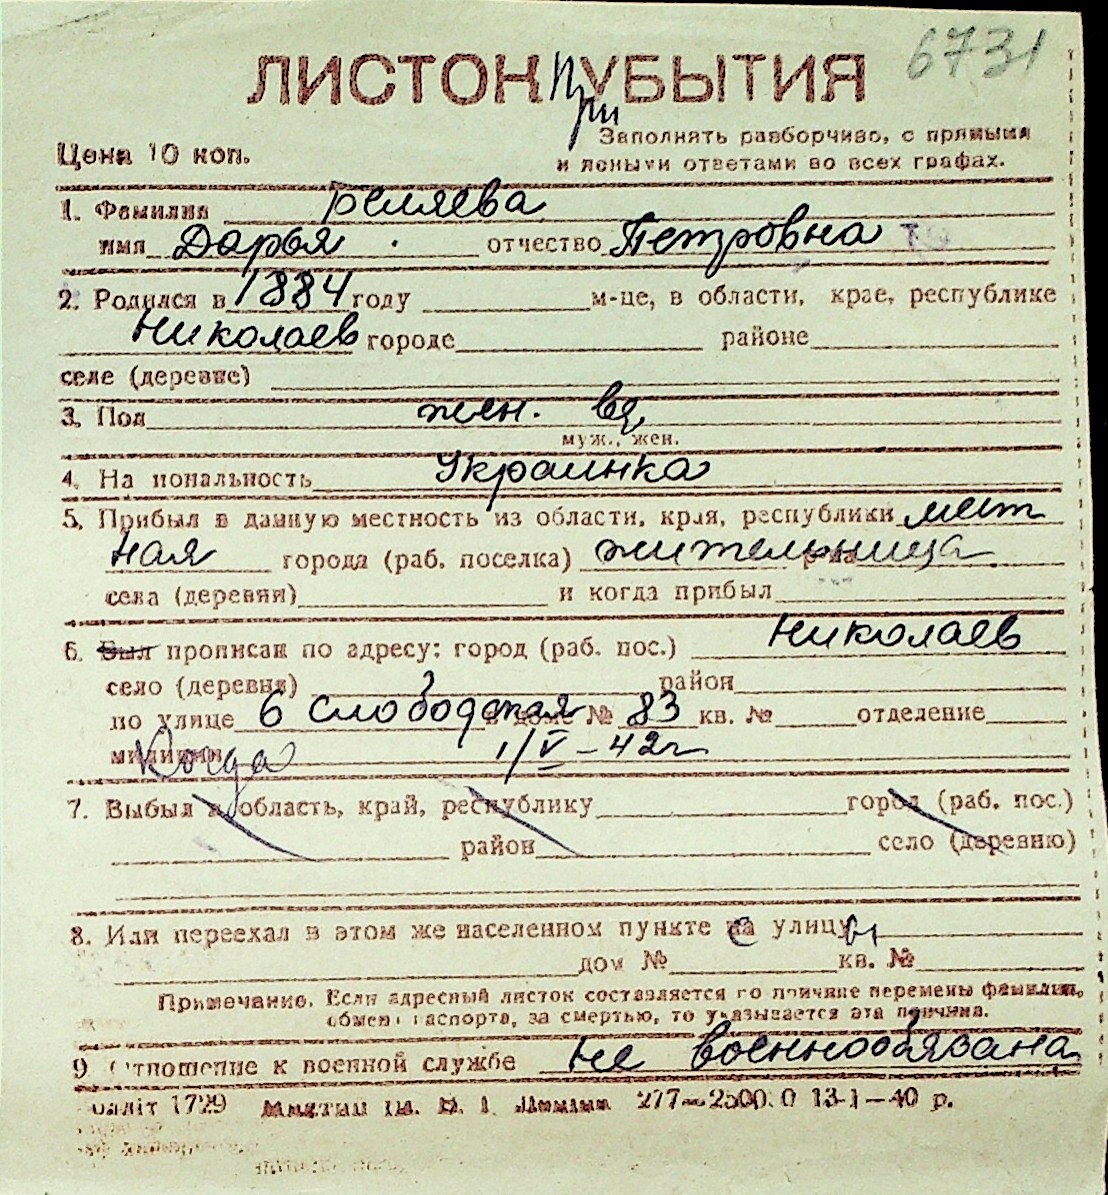 6731
ЛИСТОК при УБЫТИЯ
Заполнять разборчиво, с прямыми
Цена 10 коп.
и ясными ответами во всех графах.
1. Фамилия Беляева
имя Дарья отчество Петровна
2. Родился в 1884 году м-це, в области, крае, республике
Николаев городе районе
селе (деревне)
3. Пол жен. вд
муж., жен.
4. Национальность Украинка
5. Прибыл в данную местность из области, края, республики мест
ная города (раб. поселка) жительница р-на
села (деревни) и когда прибыл
6. Был прописан по адресу: город (раб. пос.) Николаев
село (деревня) район
по улице 6 Слободская в доме № 83 кв. № отделение
милиции Когда 1/V-42г
7. Выбыл в область, край, республику город (раб. пос.)
район село (деревню)
8. Или переехал в этом же населенном пункте с улицы
дом № кв. №
Примечание. Если адресный листок составляется по причине перемены фамилии,
обмена паспорта, за смертью, то указывается эта причина.
9 Отношение к военной службе Не военнообязана
1729 ім. В. І. Леніна 277—2500.0 13-І—40 р.